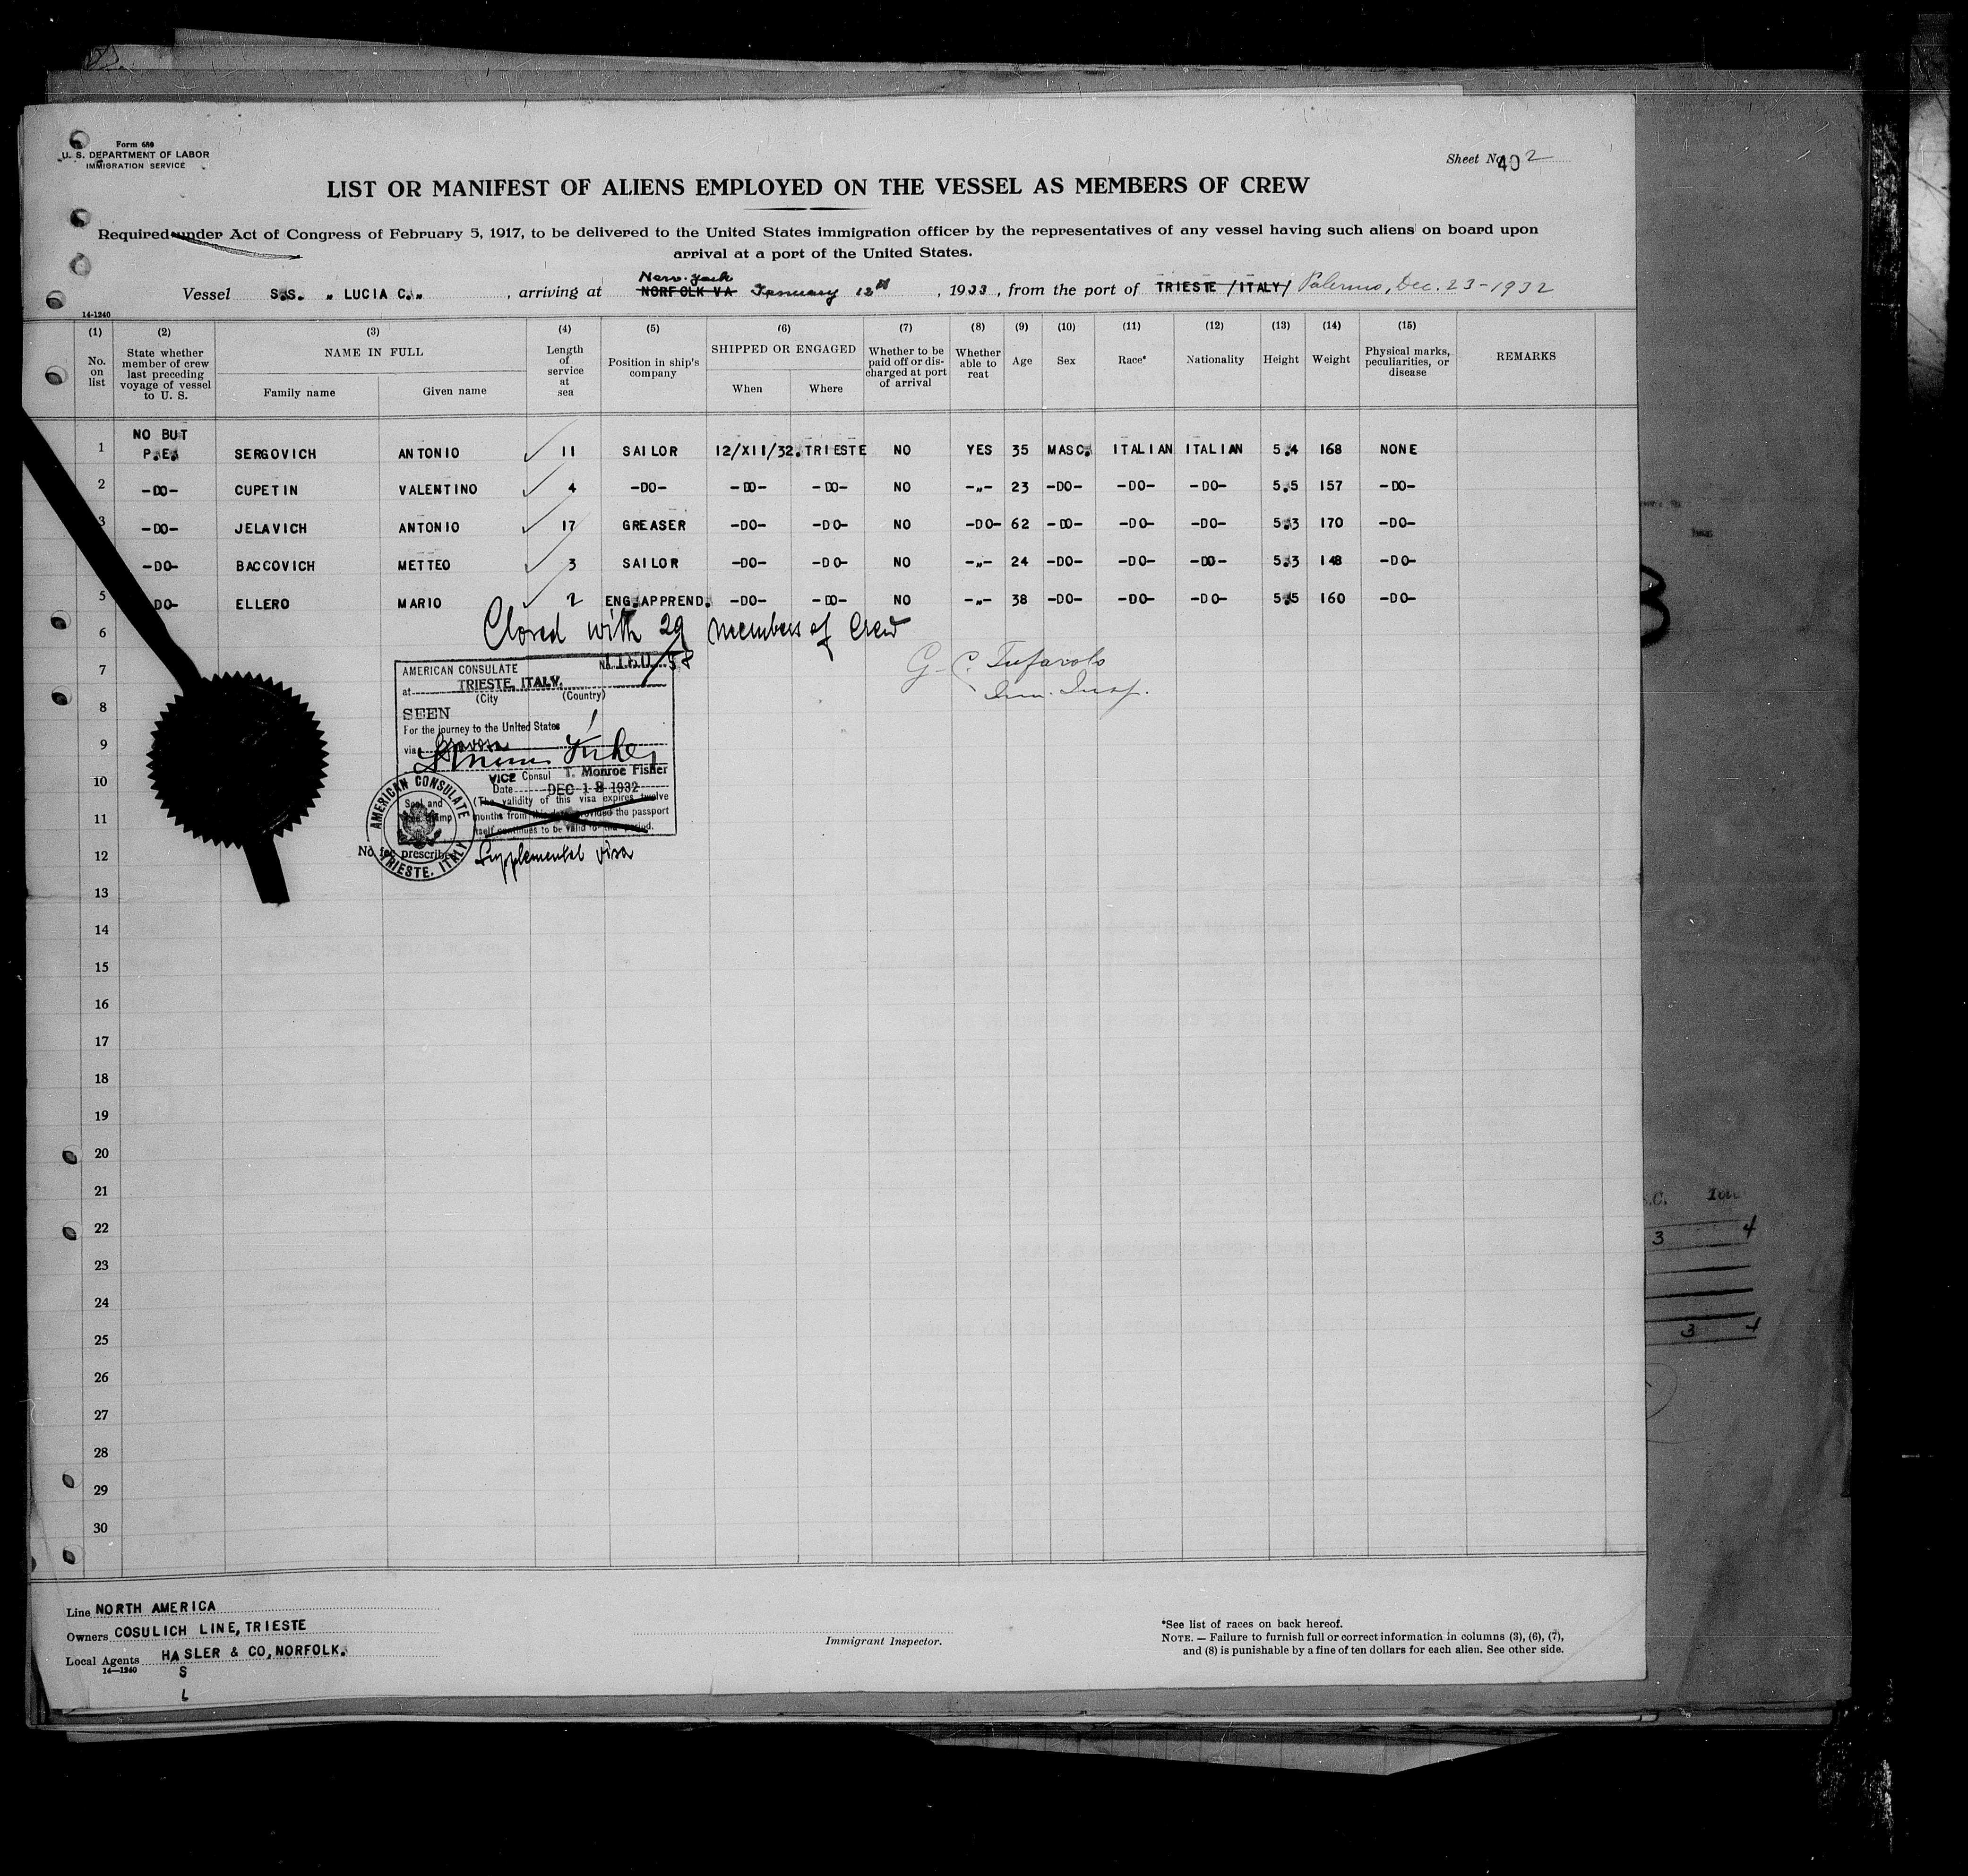 Form 680
U. S. DEPARTMENT OF LABOR
IMMIGRATION SERVICE
Sheet No. 2
40
LIST OR MANIFEST OF ALIENS EMPLOYED ON THE VESSEL AS MEMBERS OF CREW
Required under Act of Congress of February 5, 1917, to be delivered to the United States immigration officer by the representatives of any vessel having such aliens on board upon
arrival at a port of the United States.
New-York
Vessel S.S. „ LUCIA C.„ , arriving at NORFOLK VA January 13th , 1933 , from the port of TRIESTE /ITALY/ Palermo, Dec. 23-1932
14-1240
(1) (2) (3) (4) (5) (6) (7) (8) (9) (10) (11) (12) (13) (14) (15)
No. on list State whether member of crew last preceding voyage of vessel to U. S. NAME IN FULL Length of service at sea Position in ship's company SHIPPED OR ENGAGED Whether to be paid off or discharged at port of arrival Whether able to reat Age Sex Race* Nationality Height Weight Physical marks, peculiarities, or disease REMARKS
Family name Given name When Where
NO BUT
1 P.E. SERGOVICH ANTONIO 11 SAILOR 12/XII/32. TRIESTE NO YES 35 MASC. ITALIAN ITALIAN 5.4 168 NONE
2 -DO- CUPETIN VALENTINO 4 -DO- -DO- -DO- NO -„- 23 -DO- -DO- -DO- 5.5 157 -DO-
3 -DO- JELAVICH ANTONIO 17 GREASER -DO- -DO- NO -DO- 62 -DO- -DO- -DO- 5.3 170 -DO-
-DO- BACCOVICH METTEO 3 SAILOR -DO- -DO- NO -„- 24 -DO- -DO- -DO- 5.3 148 -DO-
5 DO- ELLERO MARIO 2 ENG.APPREND. -DO- -DO- NO -„- 38 -DO- -DO- -DO- 5.5 160 -DO-
Closed with 29 members of Crew
6
G. C. Tufarolo
Imm. Insp.
7
AMERICAN CONSULATE
at TRIESTE, ITALY.
(City (Country)
8
SEEN
For the journey to the United States
9
via
10
VICE Consul T. Monroe Fisher
Date DEC 18 1932
11
(The validity of this visa expires twelve
months from this date provided the passport
itself continues to be valid for that period.
AMERICAN CONSULATE
TRIESTE, ITALY
Seal and
stamp
12
No fee prescribed
Supplemental visa
13
14
15
16
17
18
19
20
21
22
23
24
25
26
27
28
29
30
Line NORTH AMERICA
Owners COSULICH LINE, TRIESTE
Local Agents HASLER & CO, NORFOLK.
14—1240
S
L
Immigrant Inspector.
*See list of races on back hereof.
NOTE. — Failure to furnish full or correct information in columns (3), (6), (7),
and (8) is punishable by a fine of ten dollars for each alien. See other side.
3 4
3 4